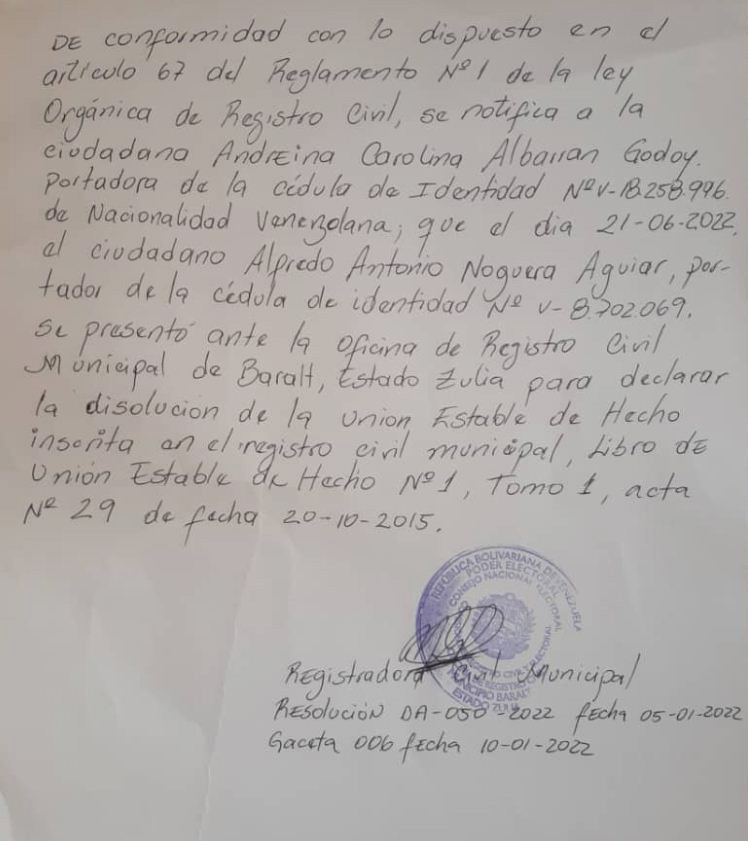 DE conformidad con lo dispuesto en el
artículo 67 del Reglamento Nº1 de la ley
Orgánica de Registro Civil, se notifica a la
ciudadana Andreina Carolina Albarran Godoy.
Portadora de la cédula de Identidad Nº V-18.258.996.
de Nacionalidad Venezolana, que el dia 21-06-2022,
el ciudadano Alfredo Antonio Noguera Aguiar, por-
tador de la cédula de identidad Nº V-8.702.069.
se presentó ante la oficina de Registro Civil
Municipal de Baralt, Estado Zulia para declarar
la disolución de la Union Estable de Hecho
inscrita en el registro civil municipal, Libro DE
Unión Estable de Hecho Nº 1, Tomo 1, acta
Nº 29 de fecha 20-10-2015.
REPÚBLICA BOLIVARIANA DE VENEZUELA
PODER ELECTORAL
CONSEJO NACIONAL ELECTORAL
MUNICIPIO BARALT
ESTADO ZULIA
Registradora Civil Municipal
Resolución DA-050-2022 fecha 05-01-2022
Gaceta 006 fecha 10-01-2022